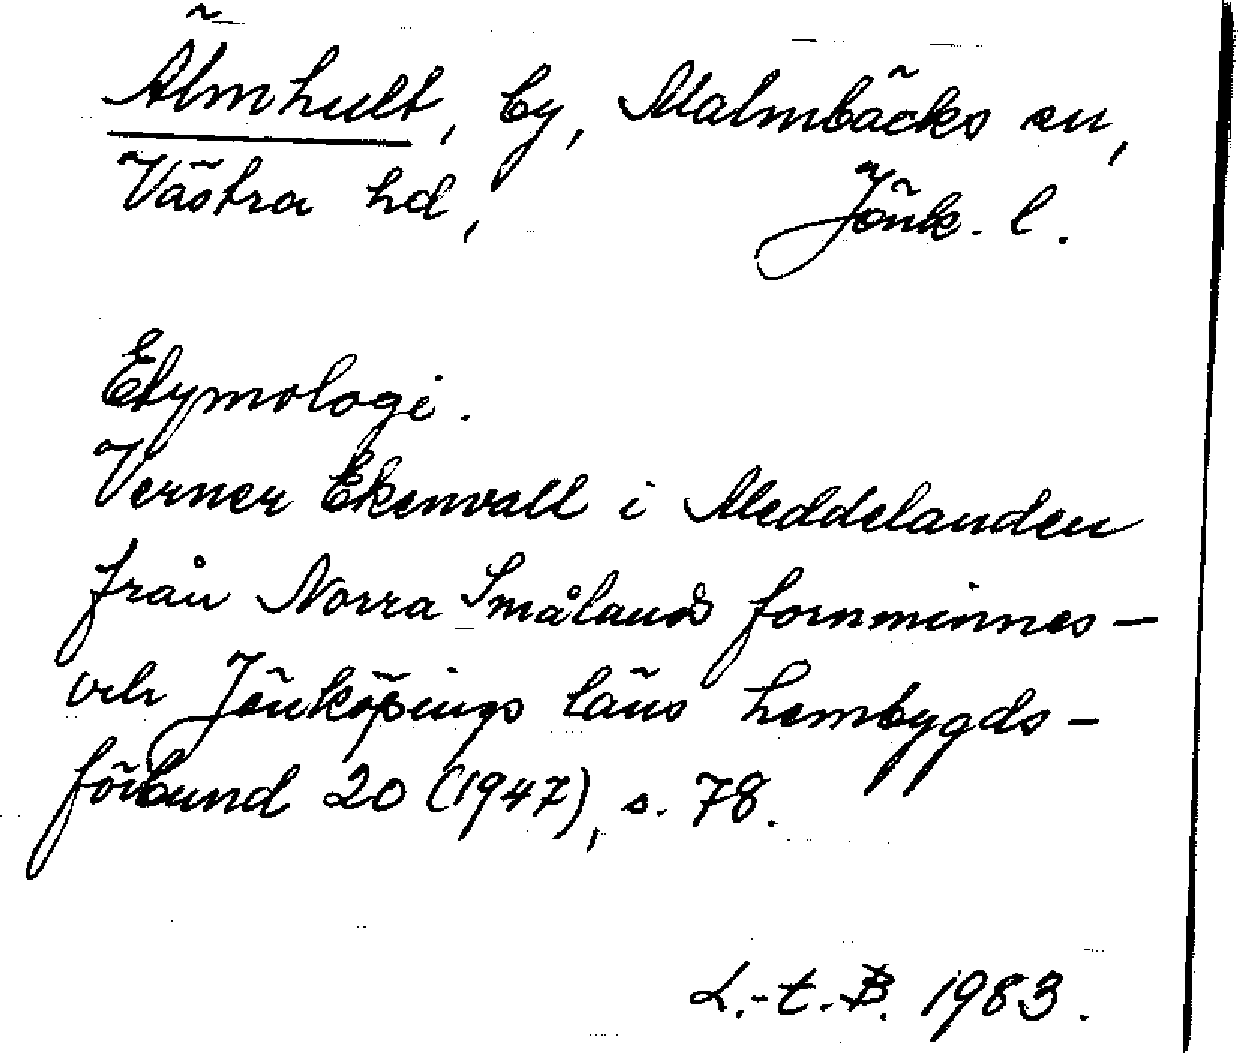 Älmhult, by, Malmbäcks sn,
Västra hd, Jönk. l.
Etymologi.
Verner Ekenvall i Meddelanden
från Norra Smålands fornminnes-
och Jönköpings läns hembygds-
förbund 20 (1947), s. 78.
L.-t. B. 1983.